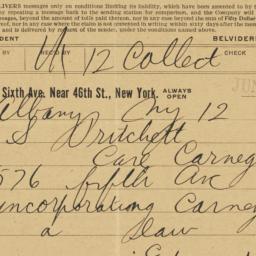 LIVERS messages only on conditions limiting its liability, which have been assented to by
by repeating a message back to the station for comparison, and the Company will
ssages, beyond the amount of tolls paid thereon, nor in any case beyond the sum of Fifty Dollar
nor in any case where the claim is not presented in writing within sixty days after the me
and is delivered by request of the sender, under the conditions named above.
DENT BELVIDERE
BY REC'D BY CHECK
12 Collect
Sixth Ave. Near 46th St., New York. ALWAYS OPEN
JUN
Albany Ny 12
S Pritchett
Care Carneg
576 fifth Ave
incorporating Carneg
a Law